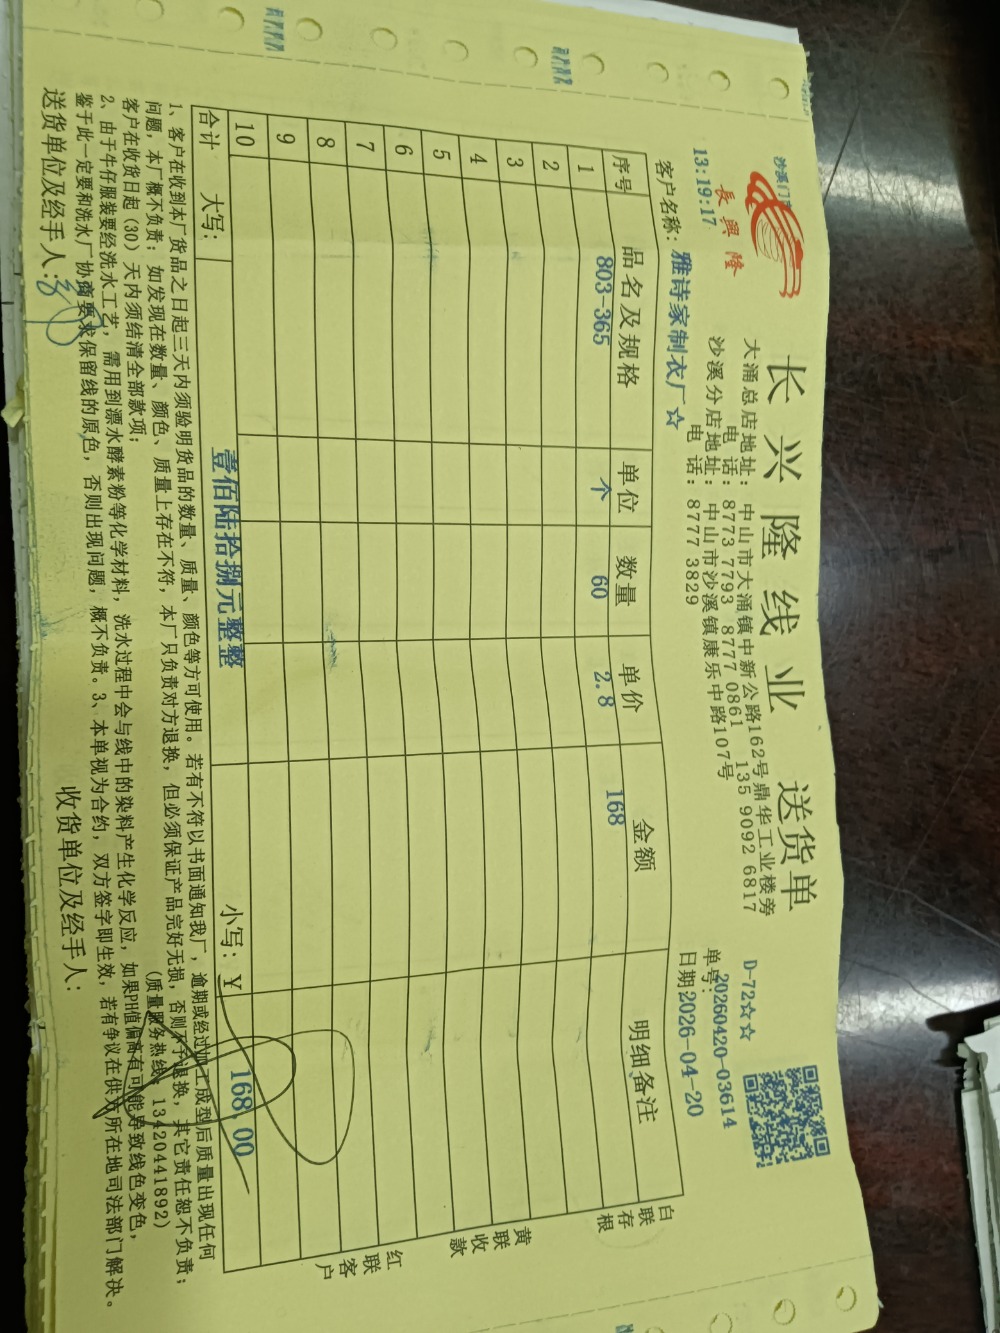 沙溪门
長興隆
长兴隆线业 送货单
大涌总店地址：中山市大涌镇中新公路162号鼎华工业楼旁
电 话：8773 7793 8777 0861 135 9092 6817
沙溪分店地址：中山市沙溪镇康乐中路107号
电 话：8777 3829
13:19:17
D-72☆☆
单号：20260420-03614
日期：2026-04-20
客户名称：雅诗家制衣厂☆
序号 品名及规格 单位 数量 单价 金额 明细备注
1 803-365 个 60 2.8 168
2
3
4
5
6
7
8
9
10
合计 大写：壹佰陆拾捌元整整 小写：¥ 168.00
白联存根
黄联收款
红联客户
1、客户在收到本厂货品之日起三天内须验明货品的数量、质量、颜色等方可使用。若有不符以书面通知我厂，逾期或经过加工成型后质量出现任何
问题，本厂概不负责；如发现在数量、颜色、质量上存在不符，本厂只负责对方退换，但必须保证产品完好无损，否则不予退换，其它责任恕不负责；
客户在收货日起（30）天内须结清全部款项； （质量服务热线：13420441892）
2、由于牛仔服装要经洗水工艺，需用到漂水酵素粉等化学材料，洗水过程中会与线中的染料产生化学反应，如果PH值偏高有可能导致线色变色，
鉴于此一定要和洗水厂协商要求保留线的原色，否则出现问题，概不负责。3、本单视为合约，双方签字即生效，若有争议在供方所在地司法部门解决。
送货单位及经手人： 收货单位及经手人：